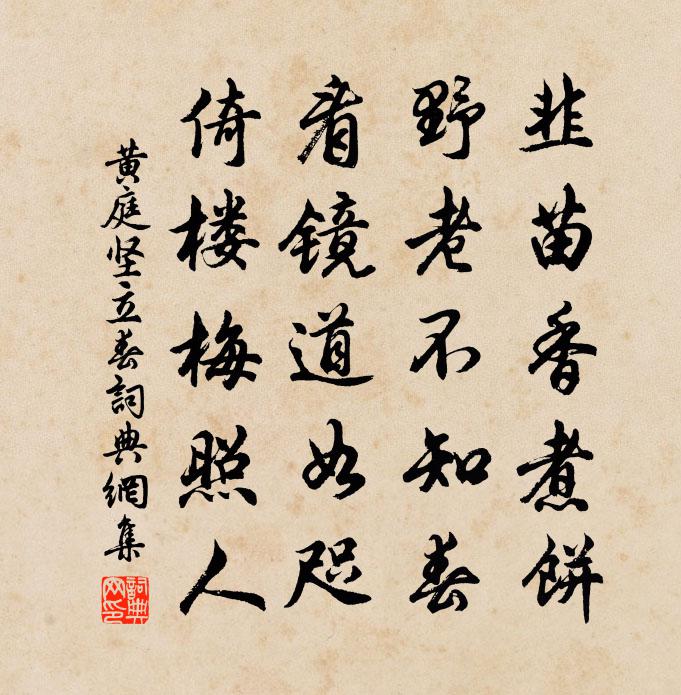 韭苗香煮餅
野老不知春
看鏡道如咫
倚楼梅照人
黄庭坚立春詞典網集
詞典网印